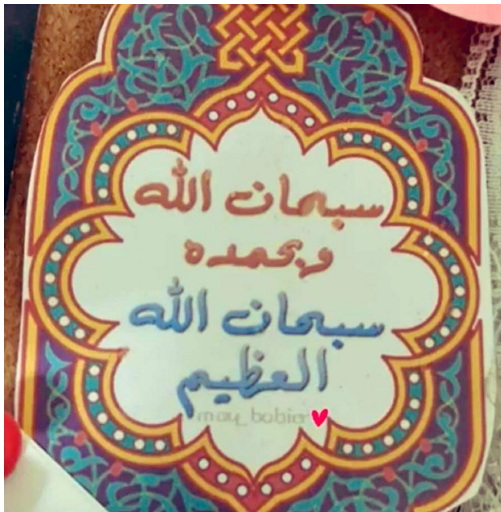 سبحان الله
وبحمده
سبحان الله
العظيم
may_babier